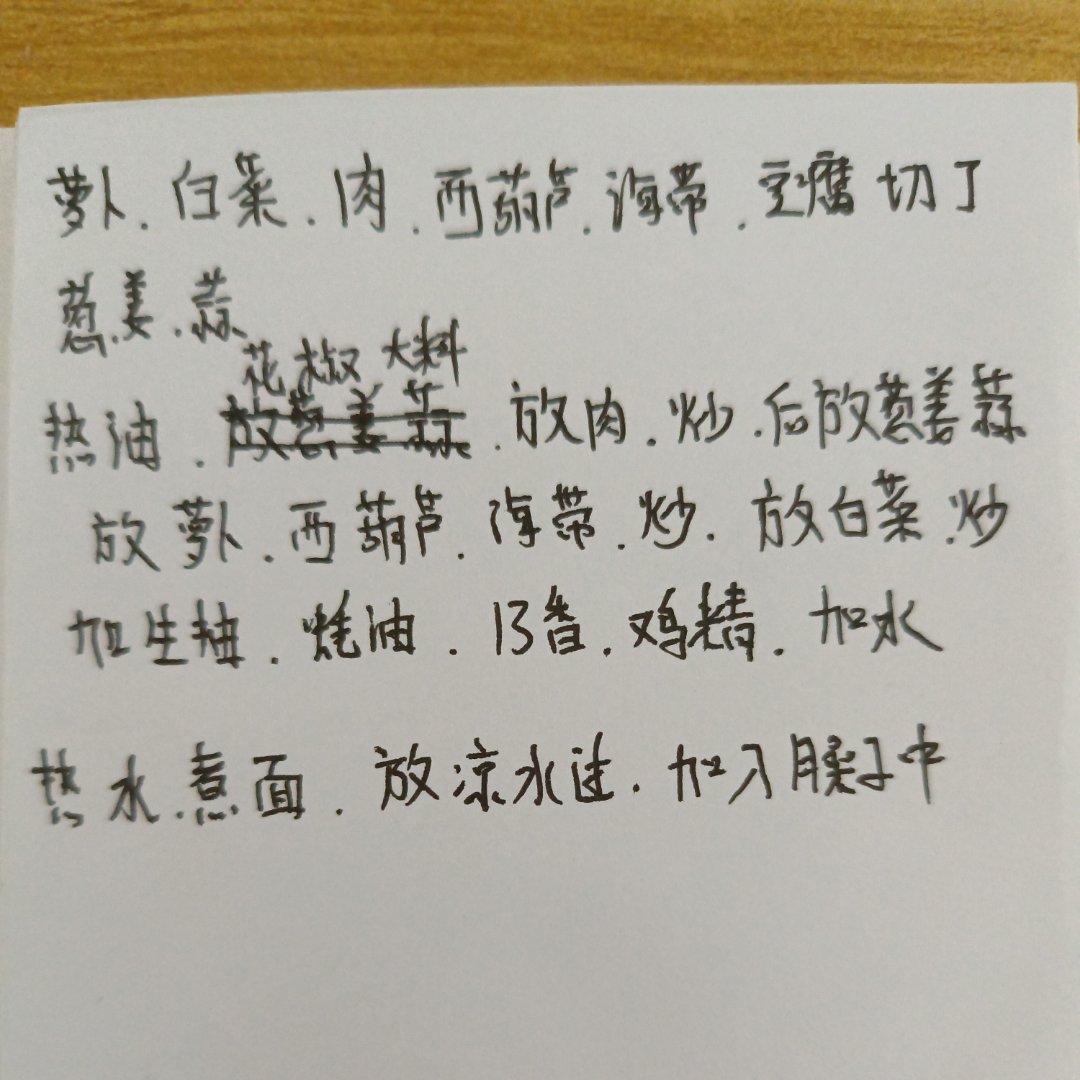 萝卜.白菜.肉.西葫芦.海带.豆腐切丁
葱姜.蒜
花椒大料
热油.放葱姜蒜.放肉.炒.后放葱姜蒜
放萝卜.西葫芦.海带.炒.放白菜.炒
加生抽.蚝油.13香.鸡精.加水
热水.煮面.放凉水过.加入臊子中